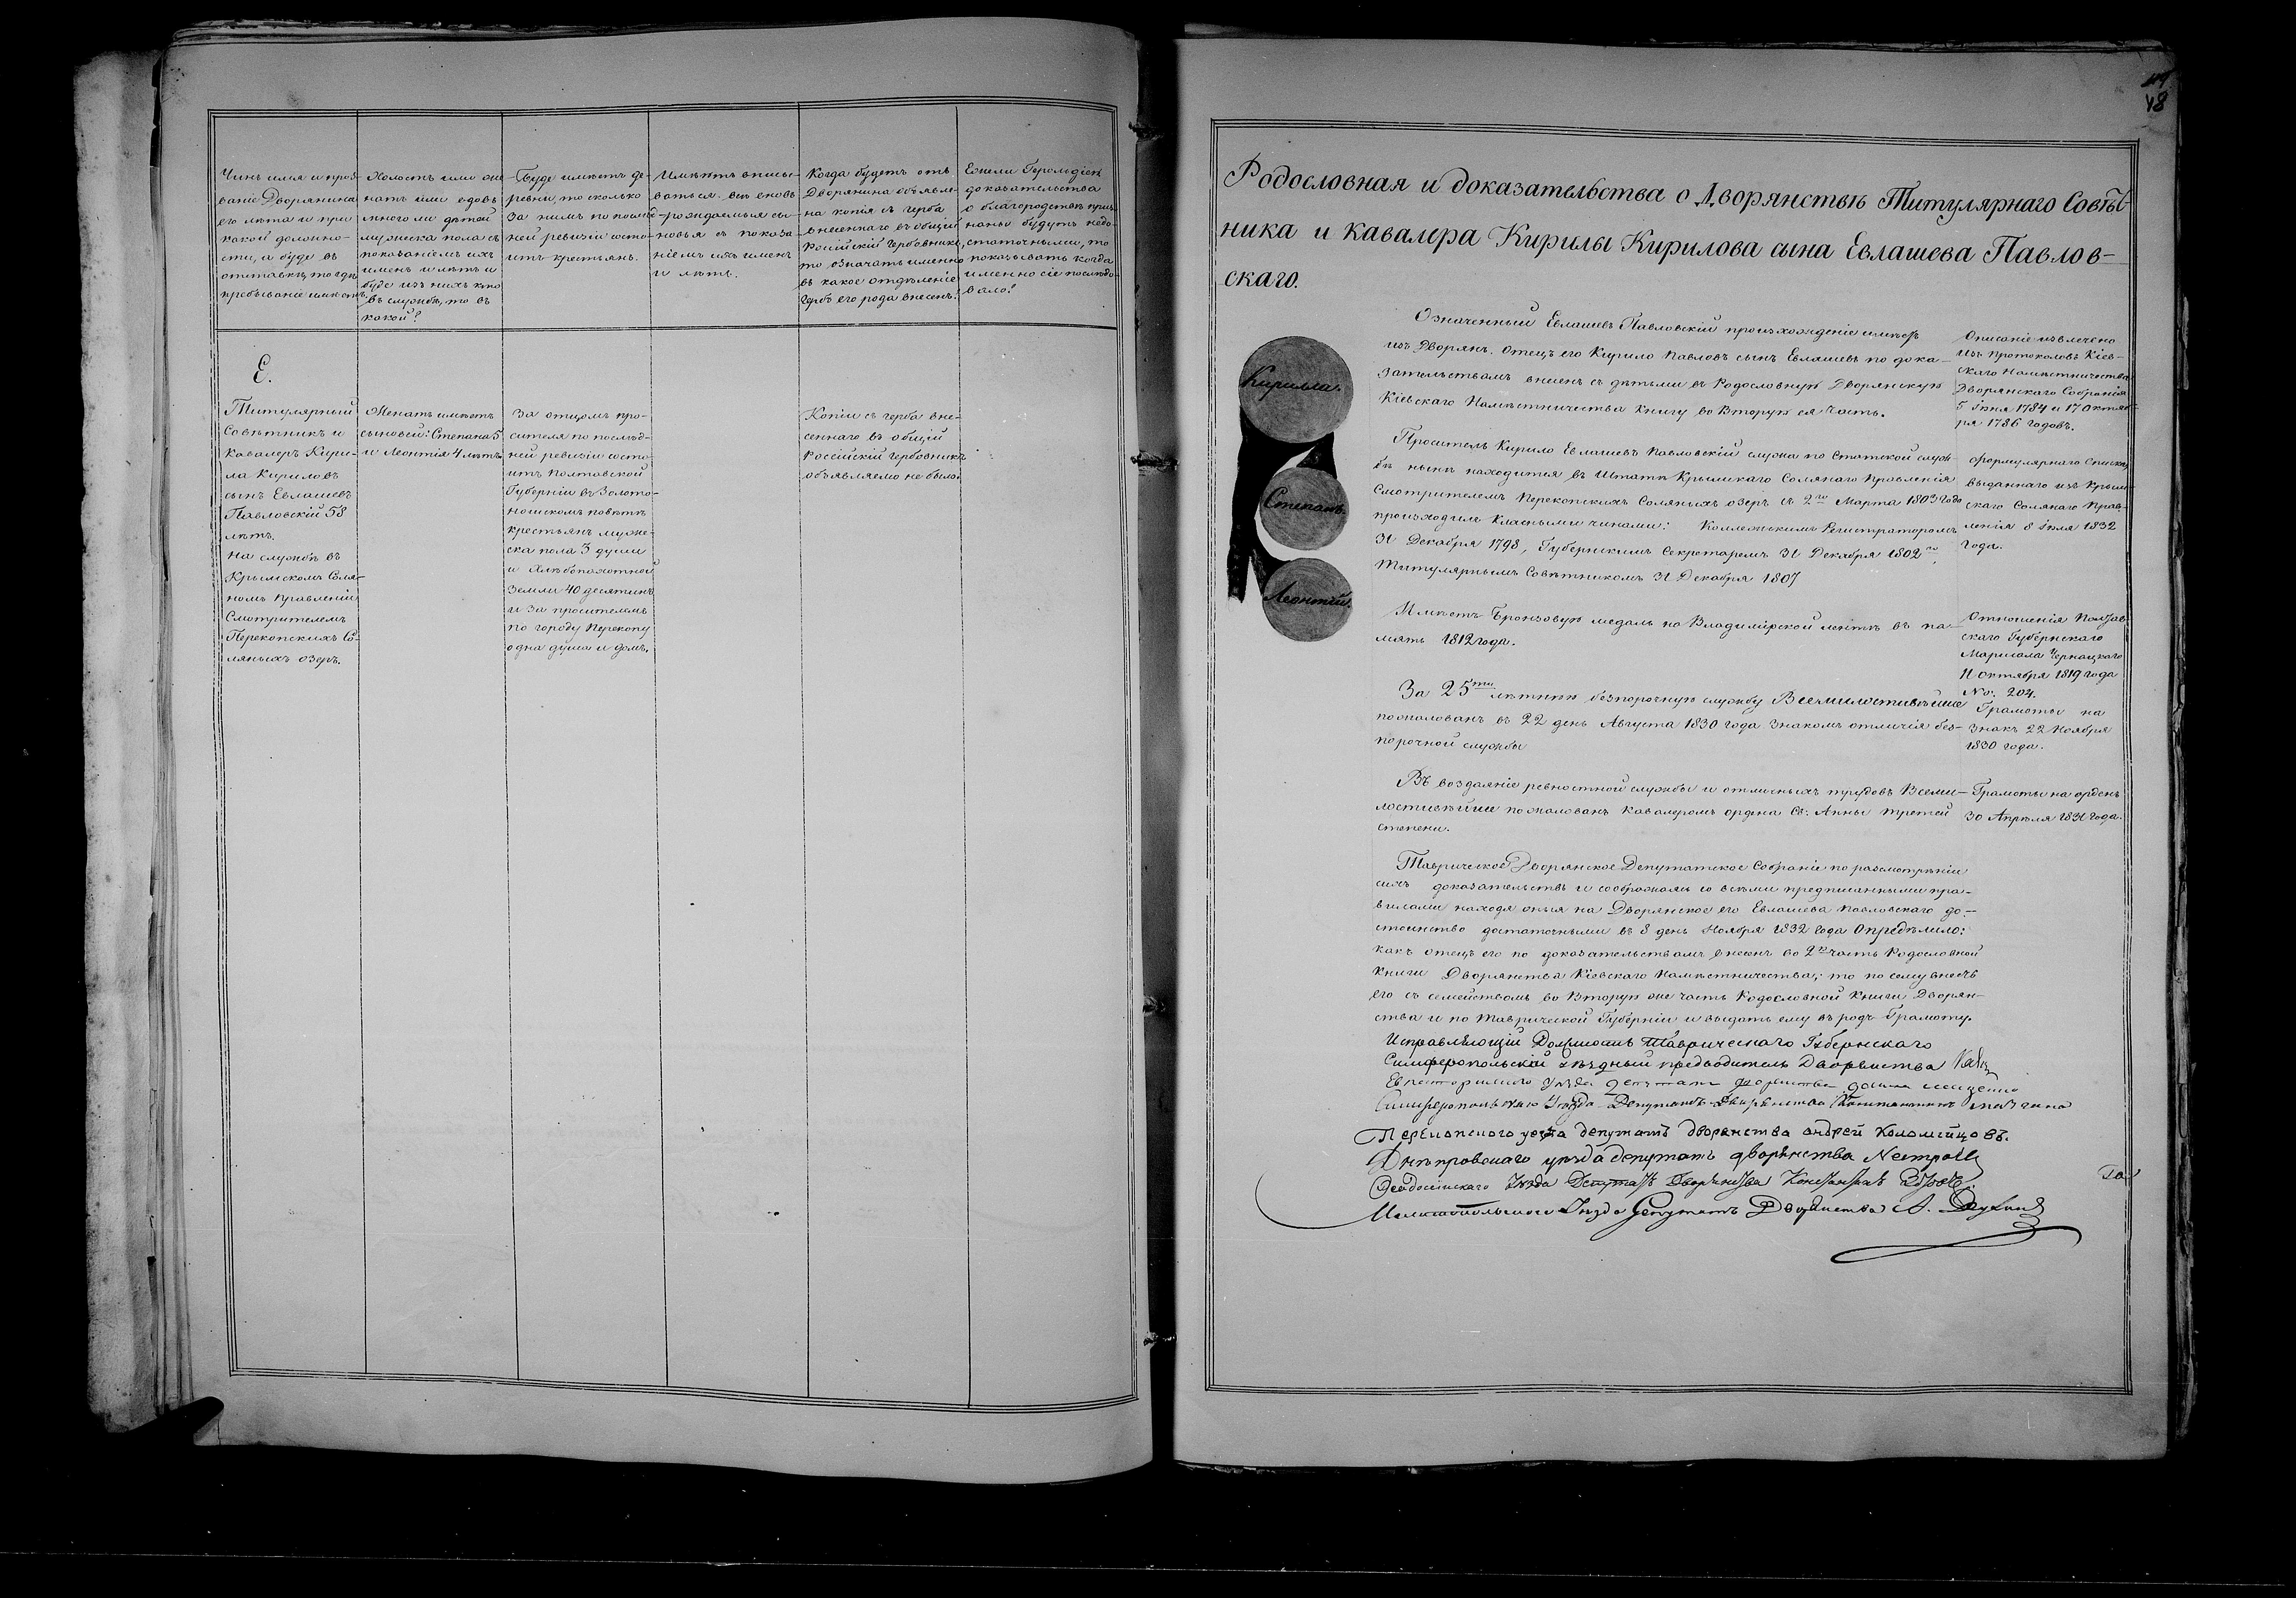 Чинъ имя и проз-
ваніе Дворянина
его лѣта и при
какой должно-
сти, а буде въ
отставкѣ, то гдѣ
пребываніе имѣетъ.
Холостъ или же-
натъ или вдовъ
много ли дѣтей
мужеска пола съ
показаніемъ ихъ
именъ и лѣтъ и
буде изъ нихъ кто
въ службѣ, то въ
какой?
Буде имѣетъ де-
ревни, то сколько
за нимъ по послѣд-
ней ревизіи состо-
итъ крестьянъ.
Имѣютъ вписы-
ваться всѣ вновь
рождаемыя сы-
новья съ показа-
ніемъ ихъ именъ
и лѣтъ.
Когда будетъ отъ
Дворянина объявле-
на копія съ герба
внесеннаго въ общій
Россійскій Гербовникъ,
то означать именно
въ какое отдѣленіе
гербъ его рода внесенъ?
Ежели Герольдіею
доказательства
о благородствѣ приз-
наны будутъ недо-
статочными, то
показывать когда
именно сіе послѣдо-
вало?
Е.
Титулярный
Совѣтникъ и
Кавалеръ Кири-
ла Кириловъ
сынъ Евлашевъ
Павловскій 58
лѣтъ.
На службѣ въ
Крымскомъ Соля-
номъ Правленіи
Смотрителемъ
Перекопскихъ Со-
ляныхъ озеръ.
Женатъ имѣетъ
сыновей: Степана 5
и Леонтія 4 лѣтъ.
За отцомъ про-
сителя по послѣд-
ней ревизіи состо-
итъ Полтавской
Губерніи въ Золото-
ношскомъ повѣтѣ
крестьянъ муже-
ска пола 3 души
и хлѣбопахотной
земли 40 десятинъ
и за просителемъ
по городу Перекопу
одна душа и домъ.
Копіи съ герба вне-
сеннаго въ общій
Россійскій Гербовникъ
объявляемо не было.
48
Родословная и доказательства о Дворянствѣ Титулярнаго Совѣт-
ника и Кавалера Кирилы Кирилова сына Евлашева Павлов-
скаго.
Кирилла.
Степанъ.
Леонтій.
Означенный Евлашевъ Павловскій происхожденіе имѣетъ
изъ Дворянъ. Отецъ его Кирило Павловъ сынъ Евлашевъ по дока-
зательствамъ внесенъ съ дѣтьми въ Родословную Дворянскую
Кіевскаго Намѣстничества книгу во Вторую ея часть.
Описаніе извлечено
изъ протоколовъ Кіев-
скаго Намѣстничества
Дворянскаго Собранія
5 Іюня 1784 и 17 Октяб-
ря 1786 годовъ.
Проситель Кирило Евлашевъ Павловскій служа по Статской служ-
бѣ нынѣ находится въ Штатѣ Крымскаго Солянаго Правленія
Смотрителемъ Перекопскихъ Соляныхъ озеръ съ 2го Марта 1803 года
происходилъ класными чинами: Коллежскимъ Регистраторомъ
31 Декабря 1798, Губернскимъ Секретаремъ 31 Декабря 1802го,
Титулярнымъ Совѣтникомъ 31 Декабря 1807
Формулярнаго Списка
выданнаго изъ Крым-
скаго Солянаго Прав-
ленія 8 Іюля 1832
года.
Имѣетъ Бронзовую медаль на Владимірской лентѣ въ па-
мять 1812 года.
Отношенія Полтав-
скаго Губернскаго
Маршала
11 Октября 1819 года
No. 204.
За 25ти лѣтнюю безпорочную службу Всемилостивѣйше
пожалованъ въ 22 день Августа 1830 года Знакомъ отличія без-
порочной службы
Грамоты на
Знакъ 22 Ноября
1830 года.
Въ воздаяніе ревностной службы и отличныхъ трудовъ Всеми-
лостивѣйше пожалованъ Кавалеромъ ордена Св: Анны третей
степени.
Грамоты на орденъ
30 Апрѣля 1831 года.
Таврическое Дворянское Депутатское Собраніе по разсмотрѣніи
сихъ доказательствъ и соображаясь со всѣми предписанными пра-
вилами находя оныя на Дворянское его Евлашева Павловскаго до-
стоинство достаточными въ 8 день Ноября 1832 года Опредѣлило:
какъ отецъ его по доказательствамъ внесенъ во 2ю часть Родословной
Книги Дворянства Кіевскаго Намѣстничества; то по сему внесть
его съ семействомъ во Вторую же часть Родословной Книги Дворян-
ства и по Таврической Губерніи и выдать ему въ родъ Грамоту.
Исправляющій Должность Таврическаго Губернскаго
Симферопольскій уѣздный предводитель Дворянства
Евпаторійскаго уѣзда депутатъ дворянства
Симферопольскаго Уѣзда Депутатъ Дворянства Константинъ
Перекопскаго уезда депутатъ дворянства андрей Коломійцовъ.
Днѣпровскаго уѣзда депутатъ дворянства
Феодосійскаго Уѣзда Депутатъ Дворянства Константинъ
Мелитопольскаго Уѣзда Депутатъ Дворянства А.